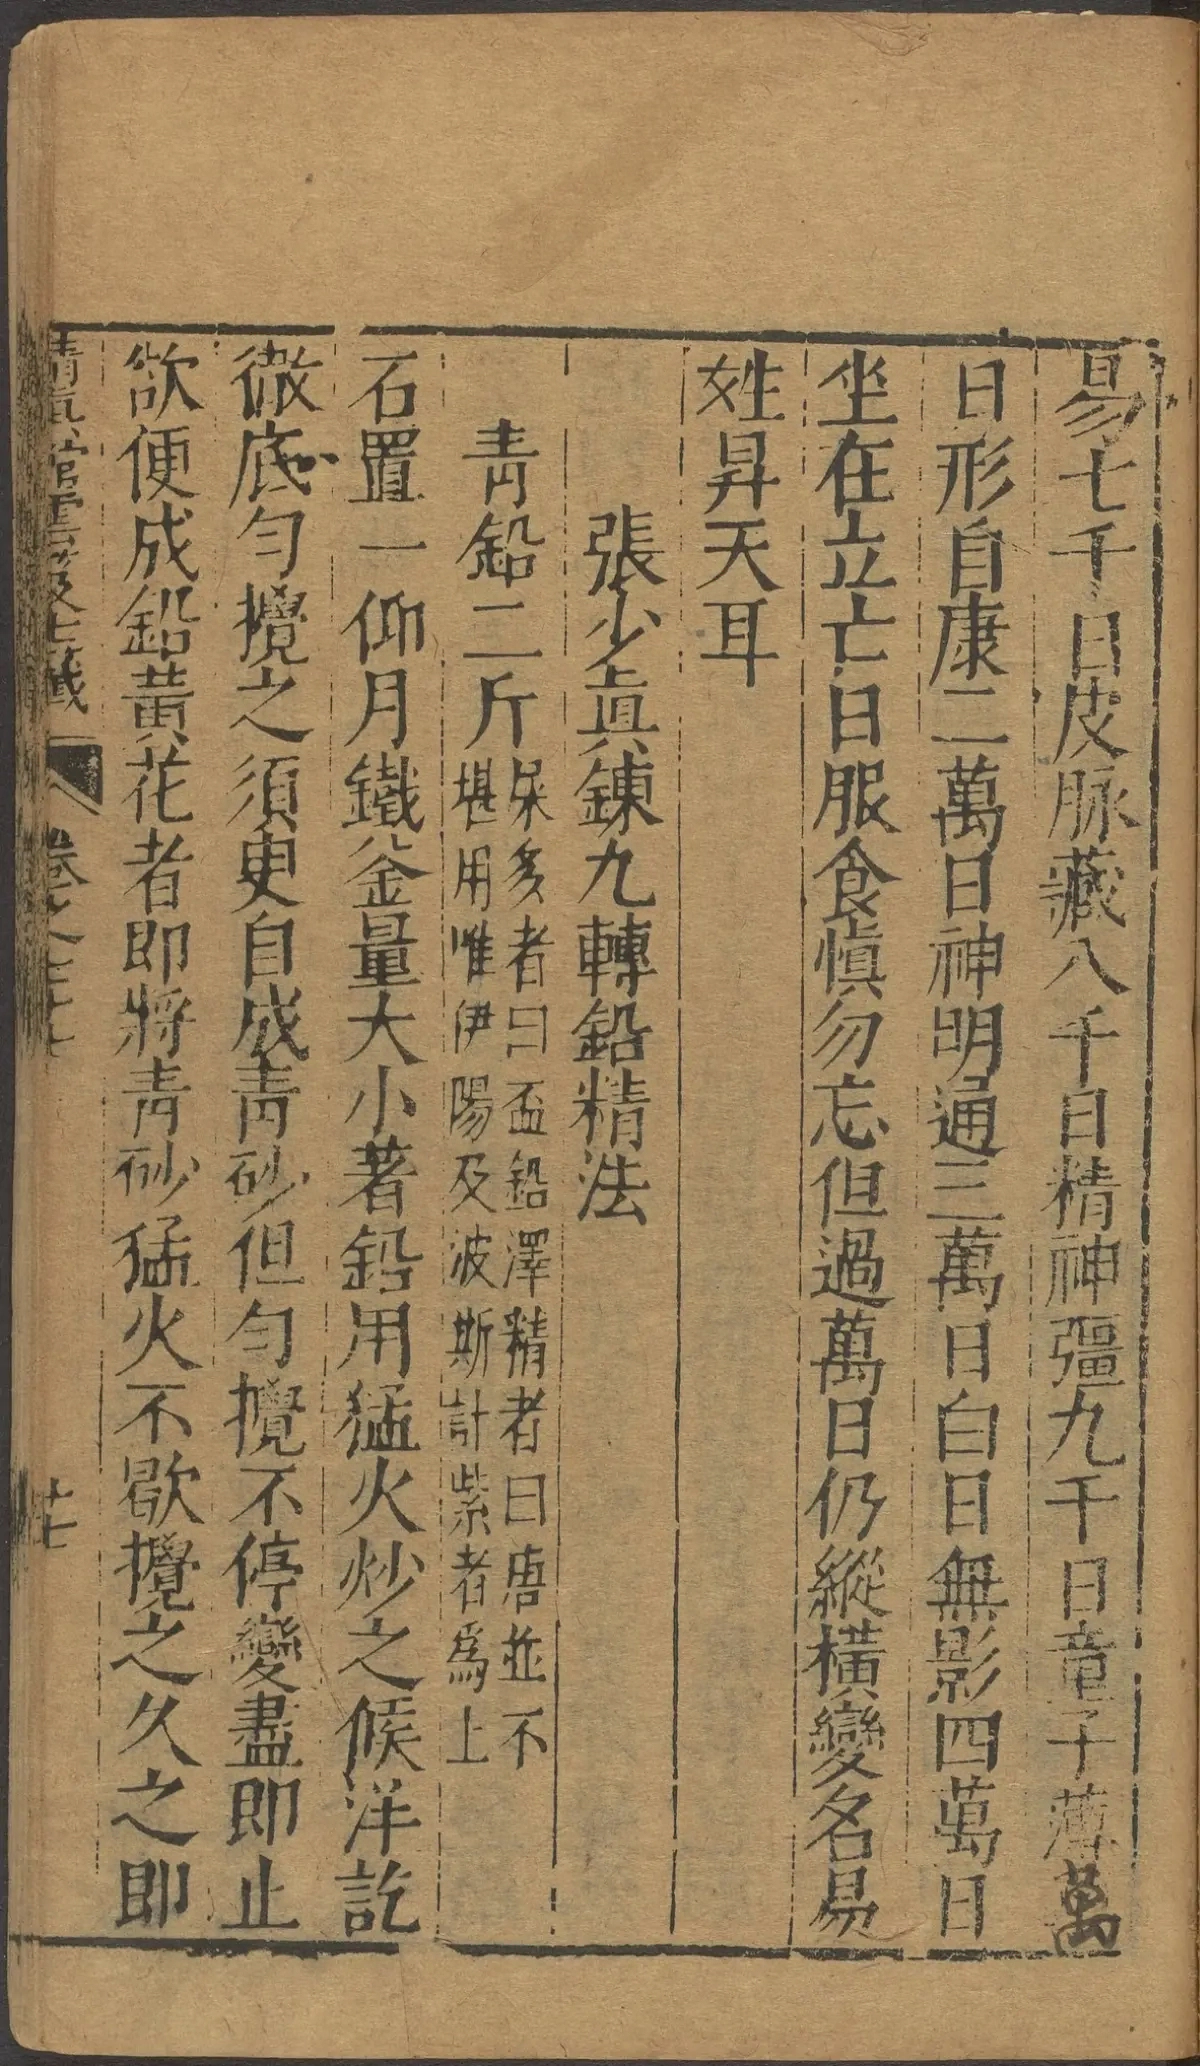 易七千日皮脉藏八千日精神彊九千日童子薄萬
日形自康二萬日神明通三萬日白日無影四萬日
坐在立亡日服食慎勿忘但過萬日仍縱橫變名易
姓昇天耳
張少眞鍊九轉鉛精法
青鉛二斤
杲多者曰盃鉛澤精者曰唐並不
堪用唯伊陽及波斯計紫者爲上
石置一仰月鐵釜量大小著鉛用猛火炒之候洋訖
徹底匀攪之須臾自成青砂但匀攪不停變盡即止
欲便成鉛黃花者即將青砂猛火不歇攪之久之即
清眞館雲笈七籤
卷之七十